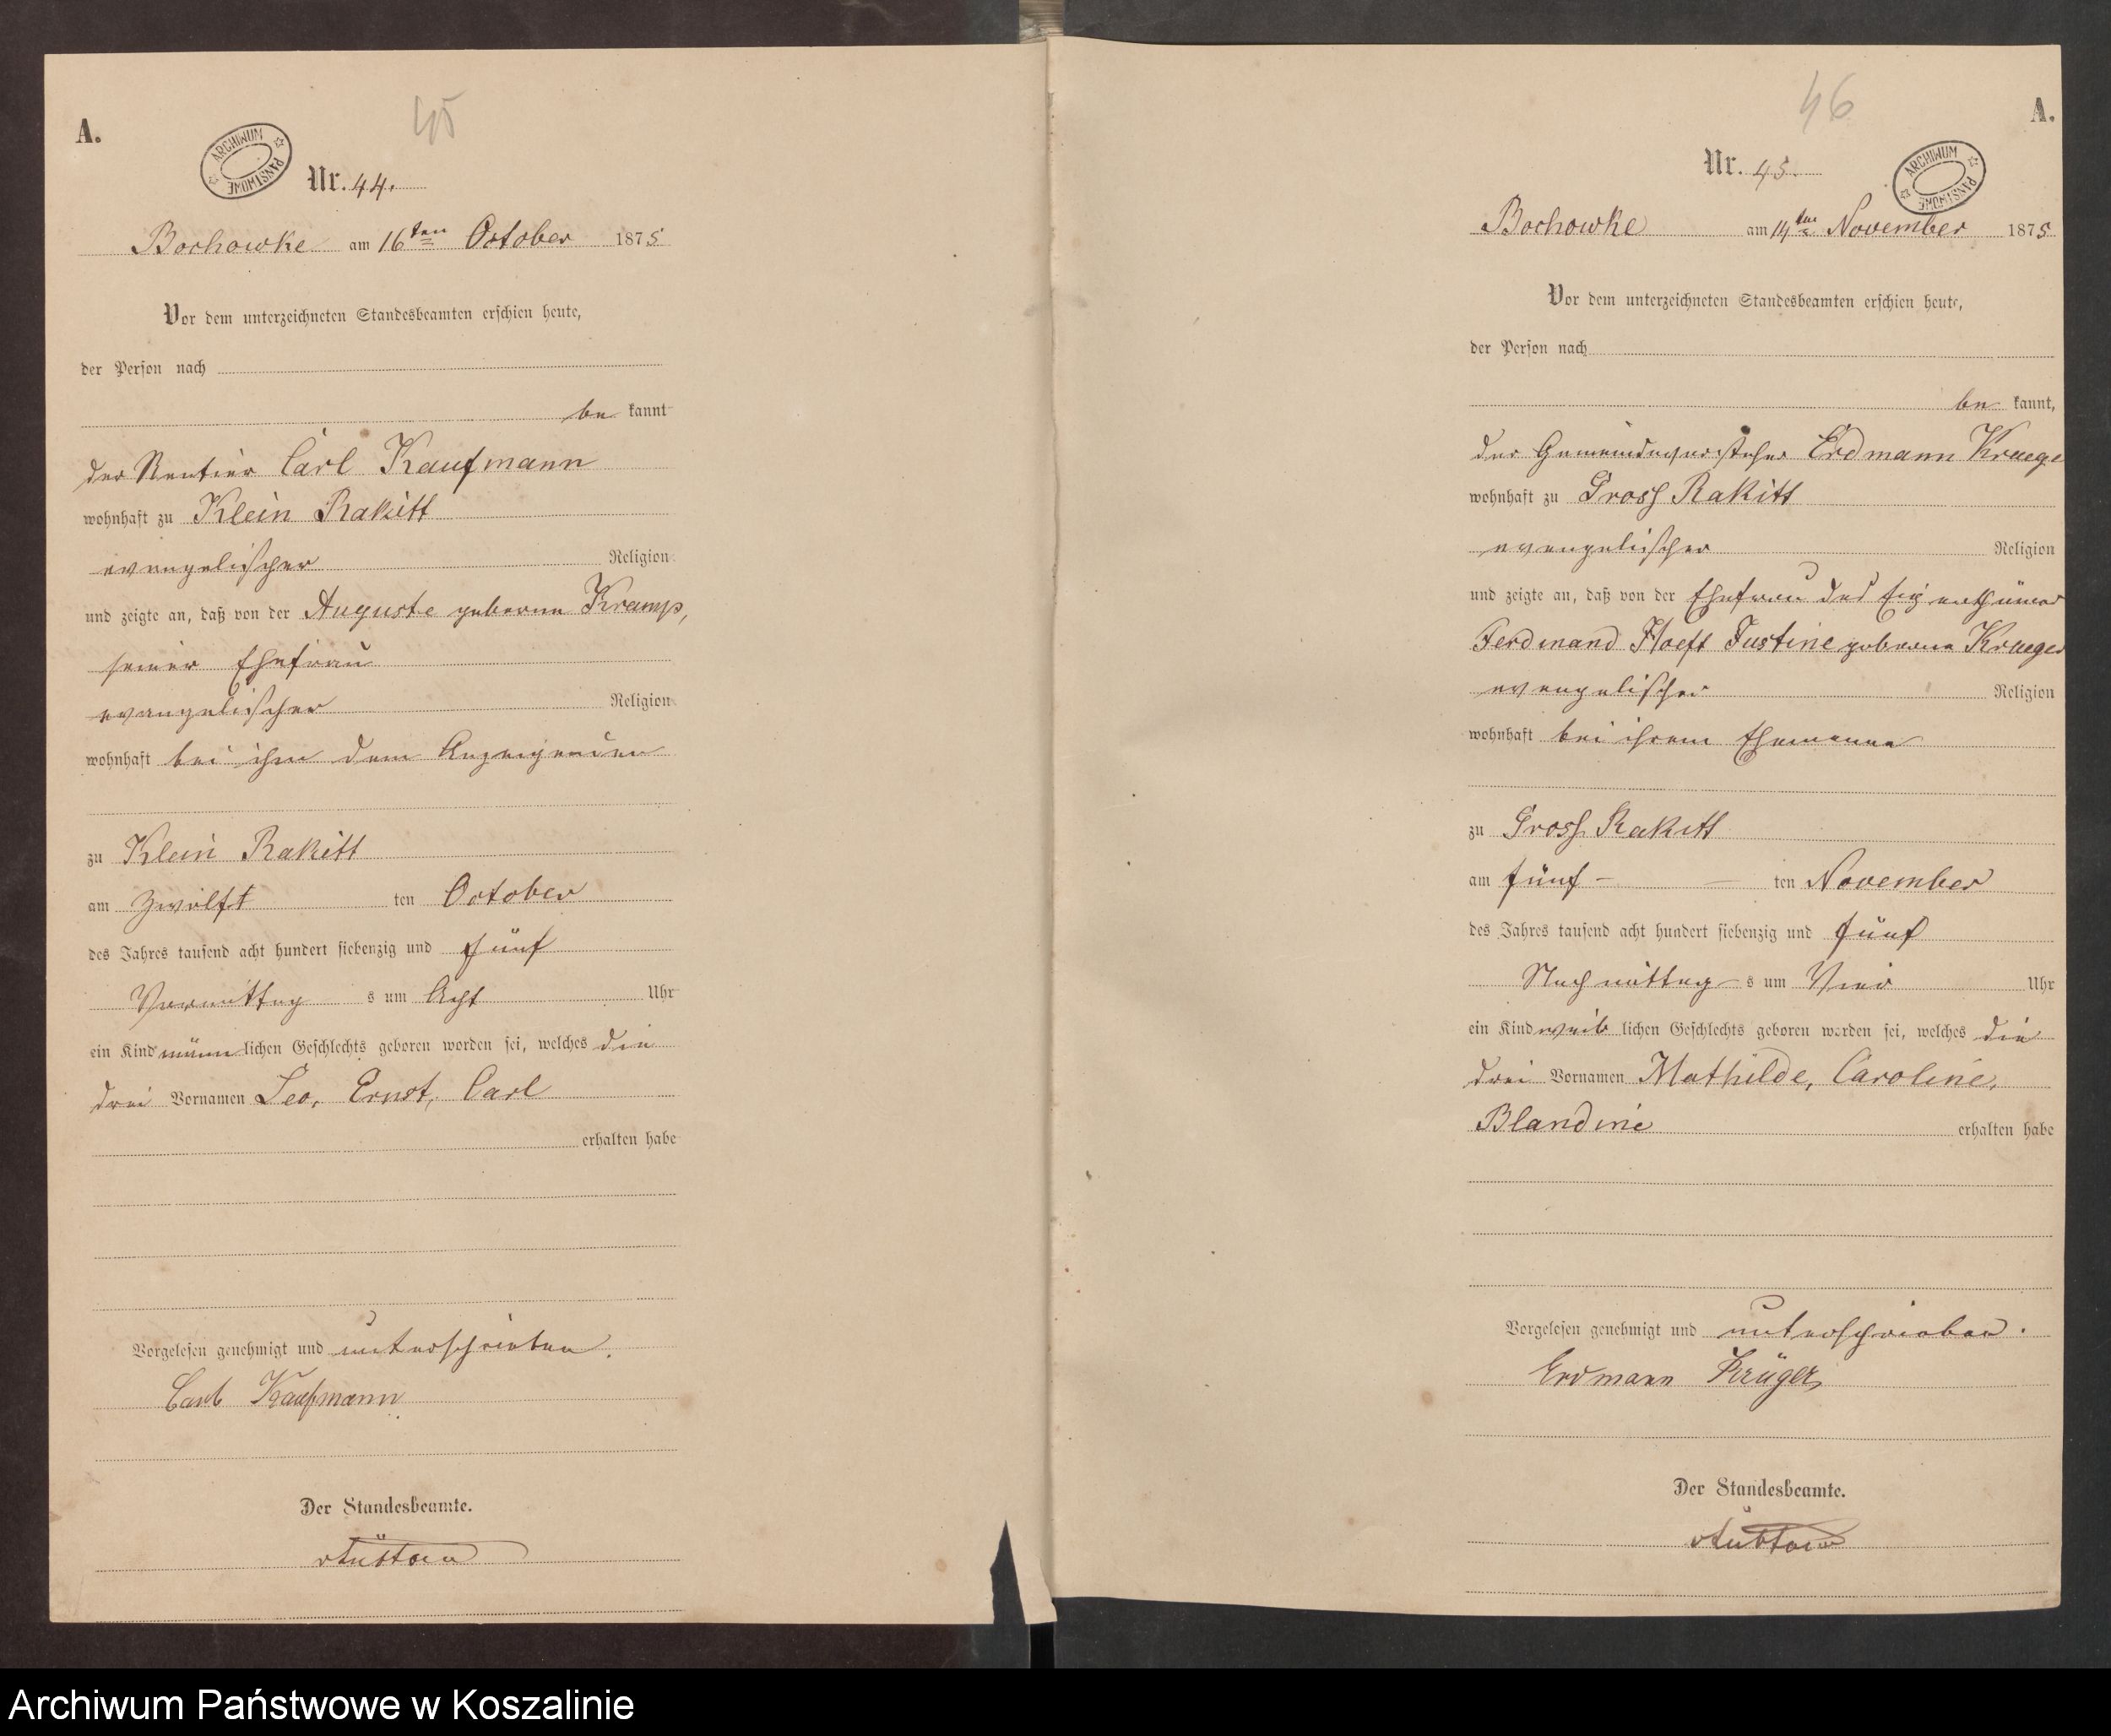 45
A.
ARCHIWUM PAŃSTWOWE
Nr. 44.
Bochowke am 16ten October 1875
Vor dem unterzeichneten Standesbeamten erschien heute,
der Person nach
be kannt
der Rentier Carl Kaufmann
wohnhaft zu Klein Rakitt
evangelischer Religion
und zeigte an, daß von der Auguste geborne Kramp,
seiner Ehefrau
evangelischer Religion
wohnhaft bei ihm dem Anzeigenden
zu Klein Rakitt
am zwölft ten October
des Jahres tausend acht hundert siebenzig und fünf
Vormittag s um Acht Uhr
ein Kind männ lichen Geschlechts geboren worden sei, welches die
drei Vornamen Leo, Ernst, Carl
erhalten habe
Vorgelesen genehmigt und unterschrieben.
Carl Kaufmann
Der Standesbeamte.
46
A.
Nr. 45.
ARCHIWUM PAŃSTWOWE
Bochowke am 14ten November 1875
Vor dem unterzeichneten Standesbeamten erschien heute,
der Person nach
be kannt,
der Gemeindevorsteher Erdmann Kruege
wohnhaft zu Gross Rakitt
evangelischer Religion
und zeigte an, daß von der Ehefrau des Eigenthümer
Ferdinand Hoeft Justine geborne Krueger
evangelischer Religion
wohnhaft bei ihrem Ehemanne
zu Gross Rakitt
am fünf - — ten November
des Jahres tausend acht hundert siebenzig und fünf
Nachmittag s um Vier Uhr
ein Kind weib lichen Geschlechts geboren worden sei, welches die
drei Vornamen Mathilde, Caroline,
Blandine erhalten habe
Vorgelesen genehmigt und unterschrieben.
Erdmann Krüger
Der Standesbeamte.
Archiwum Państwowe w Koszalinie